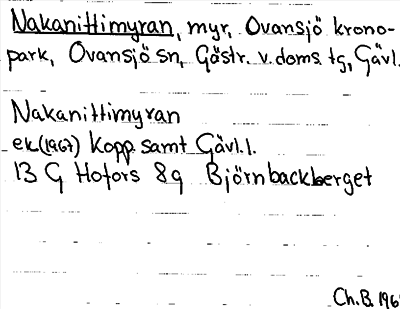 Nakanittimyran, myr, Ovansjö krono-
park, Ovansjö sn, Gästr. v. doms. tg, Gävl.
Nakanittimyran
ek. (1967) Kopp. samt Gävl. l.
13 G Hofors 8g Björnbackberget
Ch.B. 196